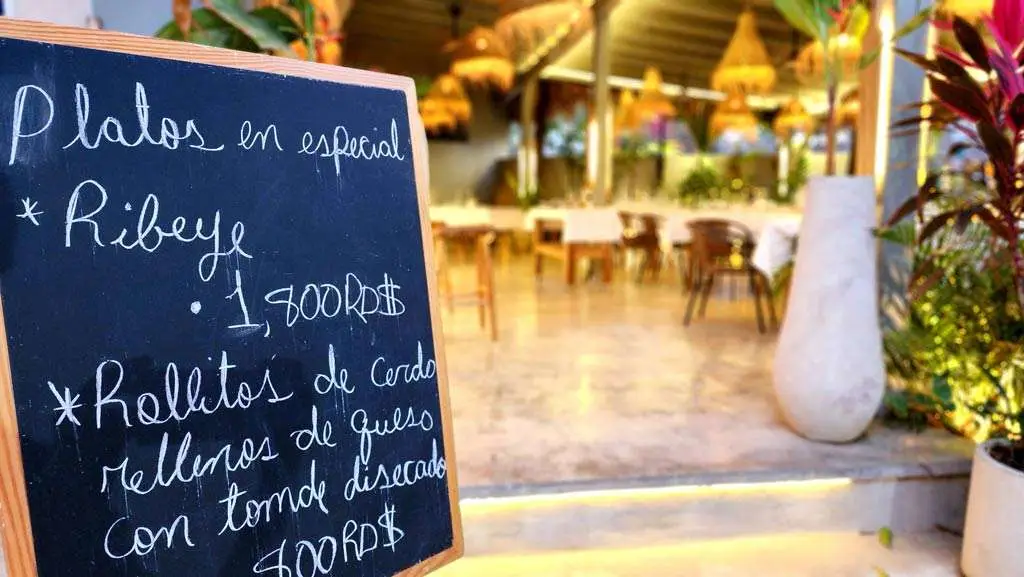 Platos en especial
* Ribeye
• 1,800RD$
* Rollitos de cerdo
rellenos de queso
con tomde disecado
800RD$